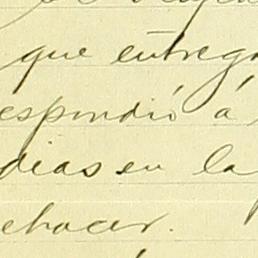 que entreg
espondió á
dias en la
ehacer.